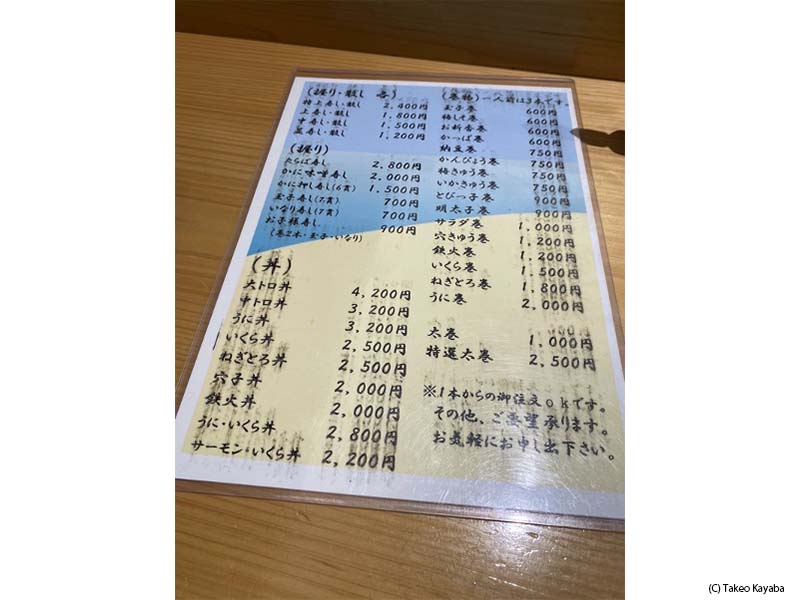 (握り・散し 各)
特上寿し・散し 2,400円
上寿し・散し 1,800円
中寿し・散し 1,500円
並寿し・散し 1,200円
(握り)
たらば寿し 2,800円
かに味噌寿し 2,000円
かに押し寿し(6貫) 1,500円
玉子寿し(7貫) 700円
いなり寿し(7貫) 700円
お子様寿し 900円
(巻2本・玉子・いなり)
(丼)
大トロ丼 4,200円
中トロ丼 3,200円
うに丼 3,200円
いくら丼 2,500円
ねぎとろ丼 2,500円
穴子丼 2,000円
鉄火丼 2,000円
うに・いくら丼 2,800円
サーモン・いくら丼 2,200円
(巻物)一人前は3本です。
玉子巻 600円
梅しそ巻 600円
お新香巻 600円
かっぱ巻 600円
納豆巻 750円
かんぴょう巻 750円
梅きゅう巻 750円
いかきゅう巻 750円
とびっ子巻 900円
明太子巻 900円
サラダ巻 1,000円
穴きゅう巻 1,200円
鉄火巻 1,200円
いくら巻 1,500円
ねぎとろ巻 1,800円
うに巻 2,000円
太巻 1,000円
特選太巻 2,500円
※1本からの御注文okです。
その他、ご要望承ります。
お気軽にお申し出下さい。
(C) Takeo Kayaba